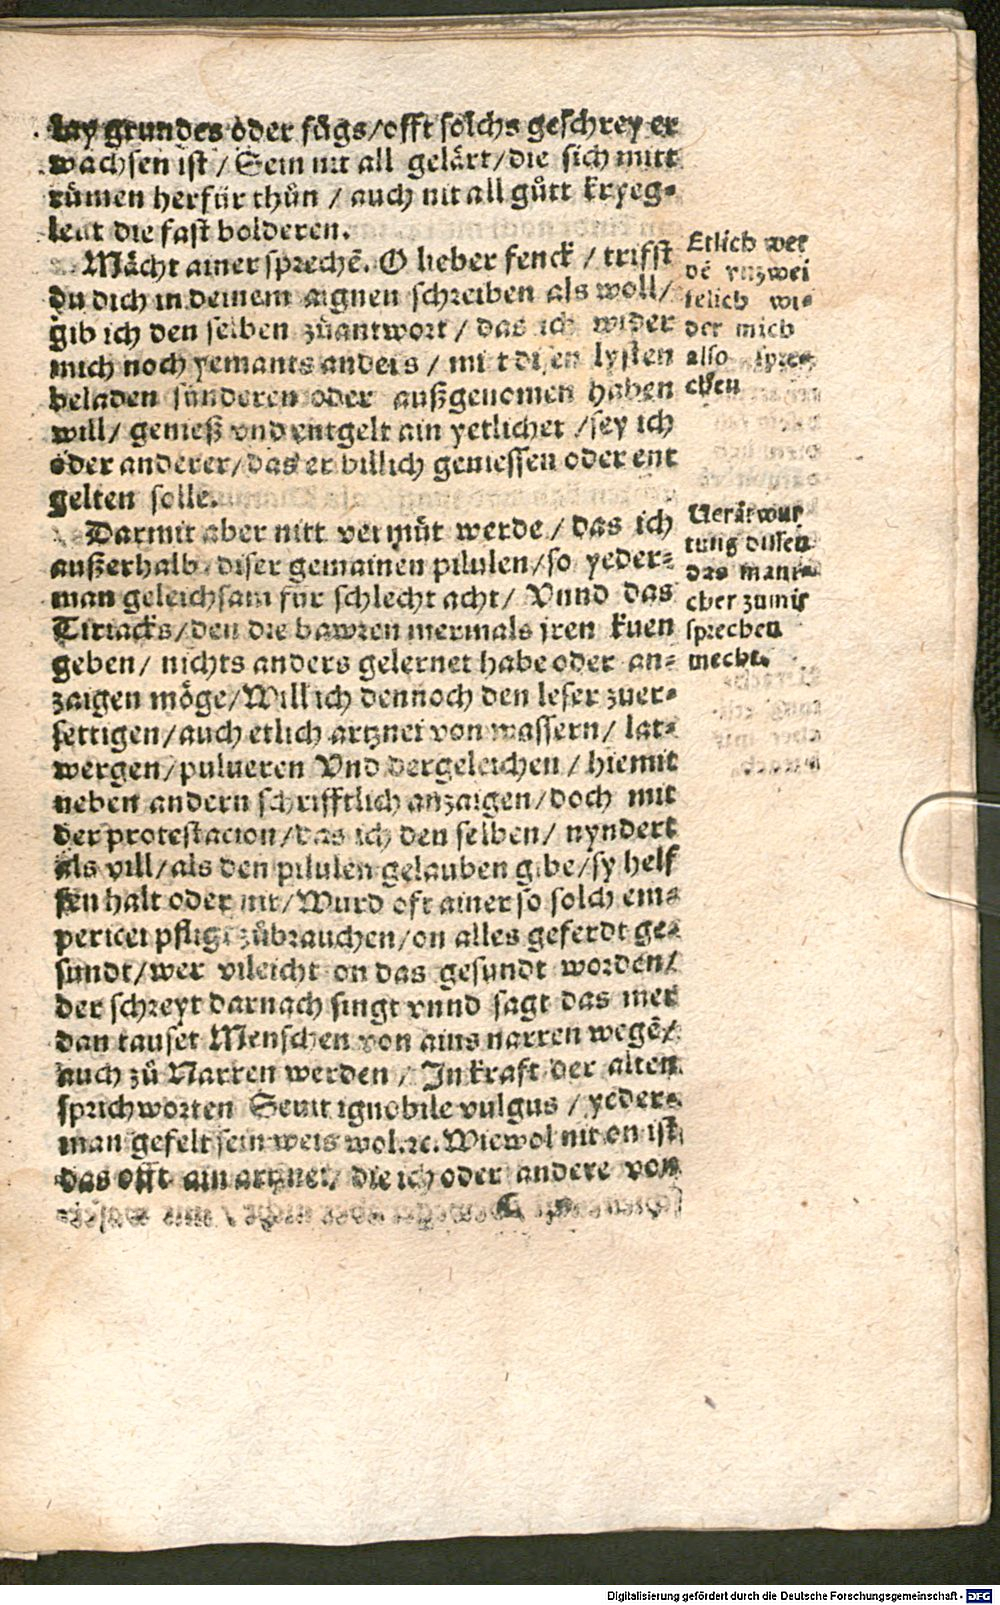 lay grundes oder fůgs/offt solchs geschrey er
wachsen ist / Sein nit all gelärt/die sich mitt
rümen herfür thůn / auch nit all gůtt kryeg-
leut die fast bolderen.
Mächt ainer sprechē. O lieber fenck / triffst
du dich in deinem aignen schreiben als woll/
gib ich den selben zůantwort / das ich wider
mich noch yemants anders / mit disen lysten
beladen sünderen oder außgenomen haben
will/ genieß vnd entgelt ain yetlicher /sey ich
oder anderer/das er billich geniessen oder ent
gelten solle.
Etlich wer
dē vnzwei
felich wi-
der mich
also spre-
chen
Darmit aber nitt vermůt werde / das ich
außerhalb diser gemainen pilulen/so yeder-
man geleichsam für schlecht acht/ Vnnd das
Tiriacks/den die bawren mermals jren kuen
geben/ nichts anders gelernet habe oder an-
zaigen möge/Will ich dennoch den leser zuer-
settigen/auch etlich artznei von wassern/ lat-
wergen/pulueren Vnd dergeleichen / hiemit
neben andern schrifftlich anzaigen/doch mit
der protestacion/das ich den selben/ nyndert
als vill/als den pilulen gelauben gibe/sy helf
fen halt oder nit/Wurd oft ainer so solch em-
pericei pfligt zůbrauchen/on alles geferdt ge-
sundt/wer vileicht on das gesundt worden/
der schreyt darnach singt vnnd sagt das mer
dan tauset Menschen von ains narren wegē/
auch zů Narren werden / In kraft der alten
sprichworten Seuit ignobile vulgus / yeder-
man gefelt sein weis wol.ꝛc. Wiewol nit on ist
das offt ain artznei/ die ich oder andere von
Uerātwur
tung dissen
das mani-
cher zumir
sprechen
mecht.
Digitalisierung gefördert durch die Deutsche Forschungsgemeinschaft - DFG